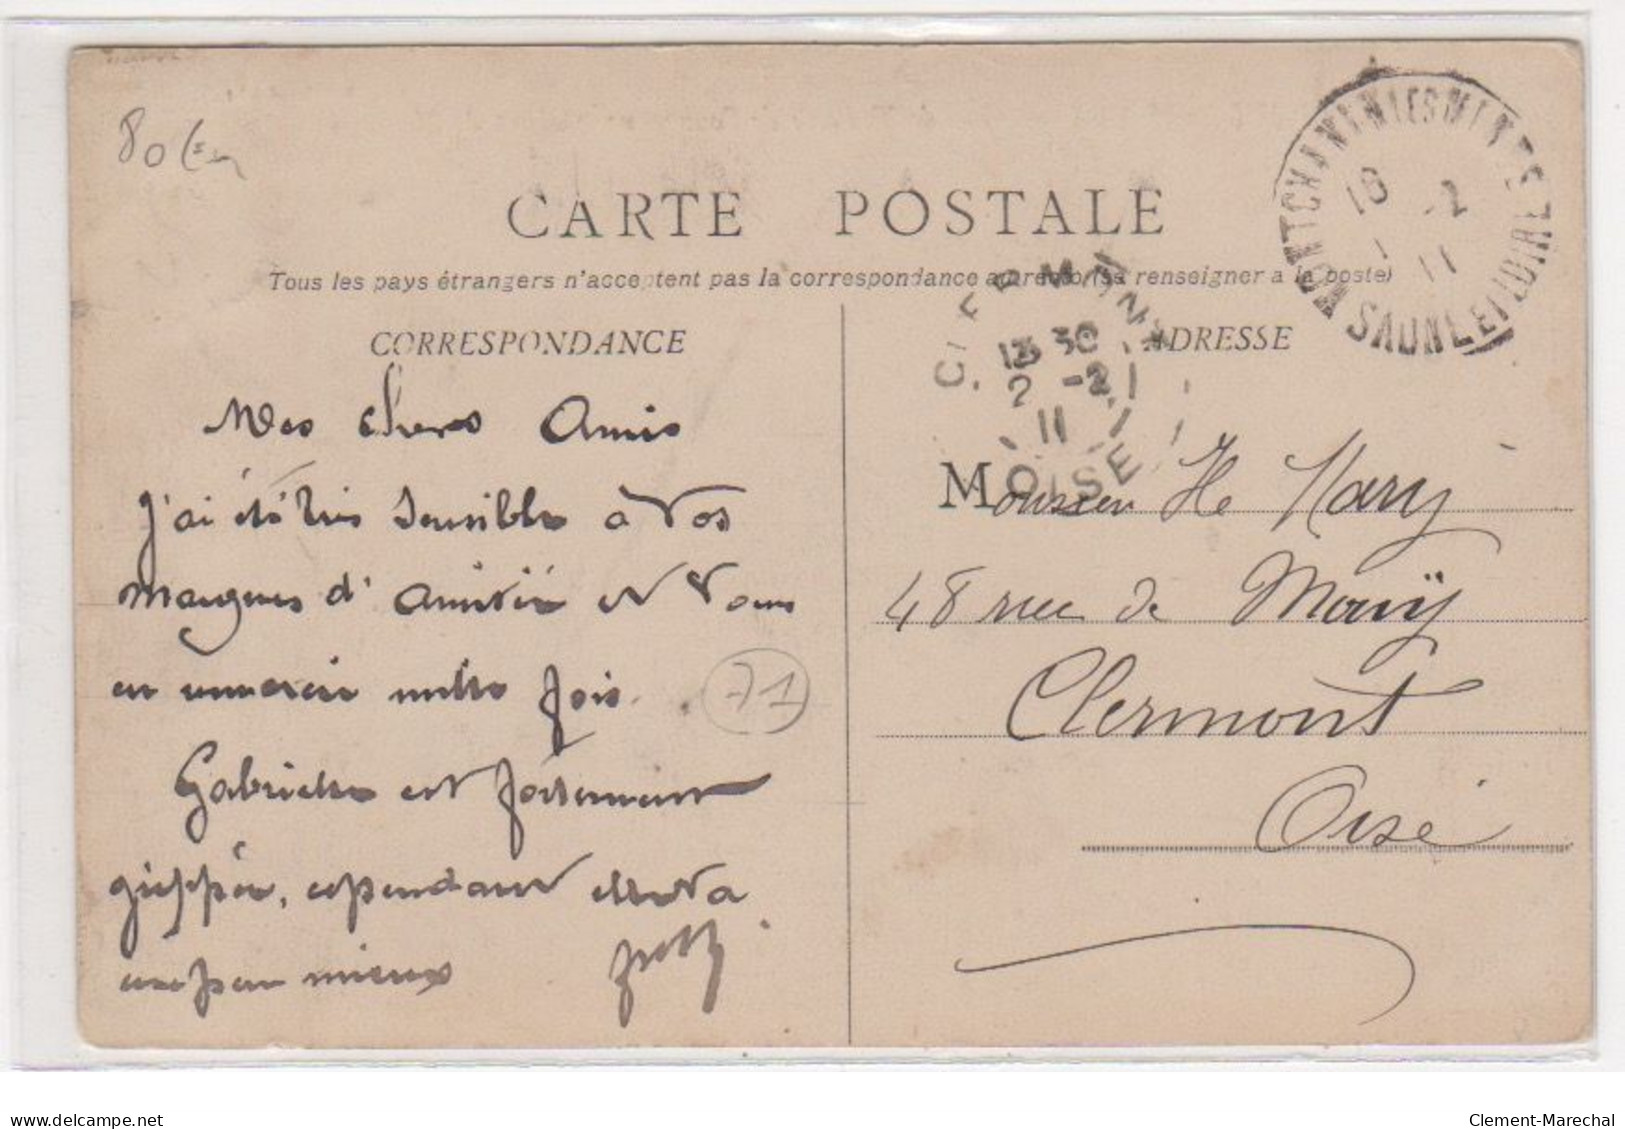 80 Em
CARTE POSTALE
Tous les pays étrangers n'acceptent pas la correspondance au recto (se renseigner à la poste)
MONTCHANIN LES MINES
18 2
11
SAONE ET LOIRE
CLERMONT
13 30
2 -2
11
OISE
CORRESPONDANCE
ADRESSE
Mes chers Amis
j'ai été très sensible à vos
marques d'amitié et vous
en remercie mille fois.
71
Gabrielle est fortement
grippée, cependant elle va
un peu mieux
Monsieur He Nary
48 rue de Mouÿ
Clermont
Oise
delcampe.net
Clement-Marechal